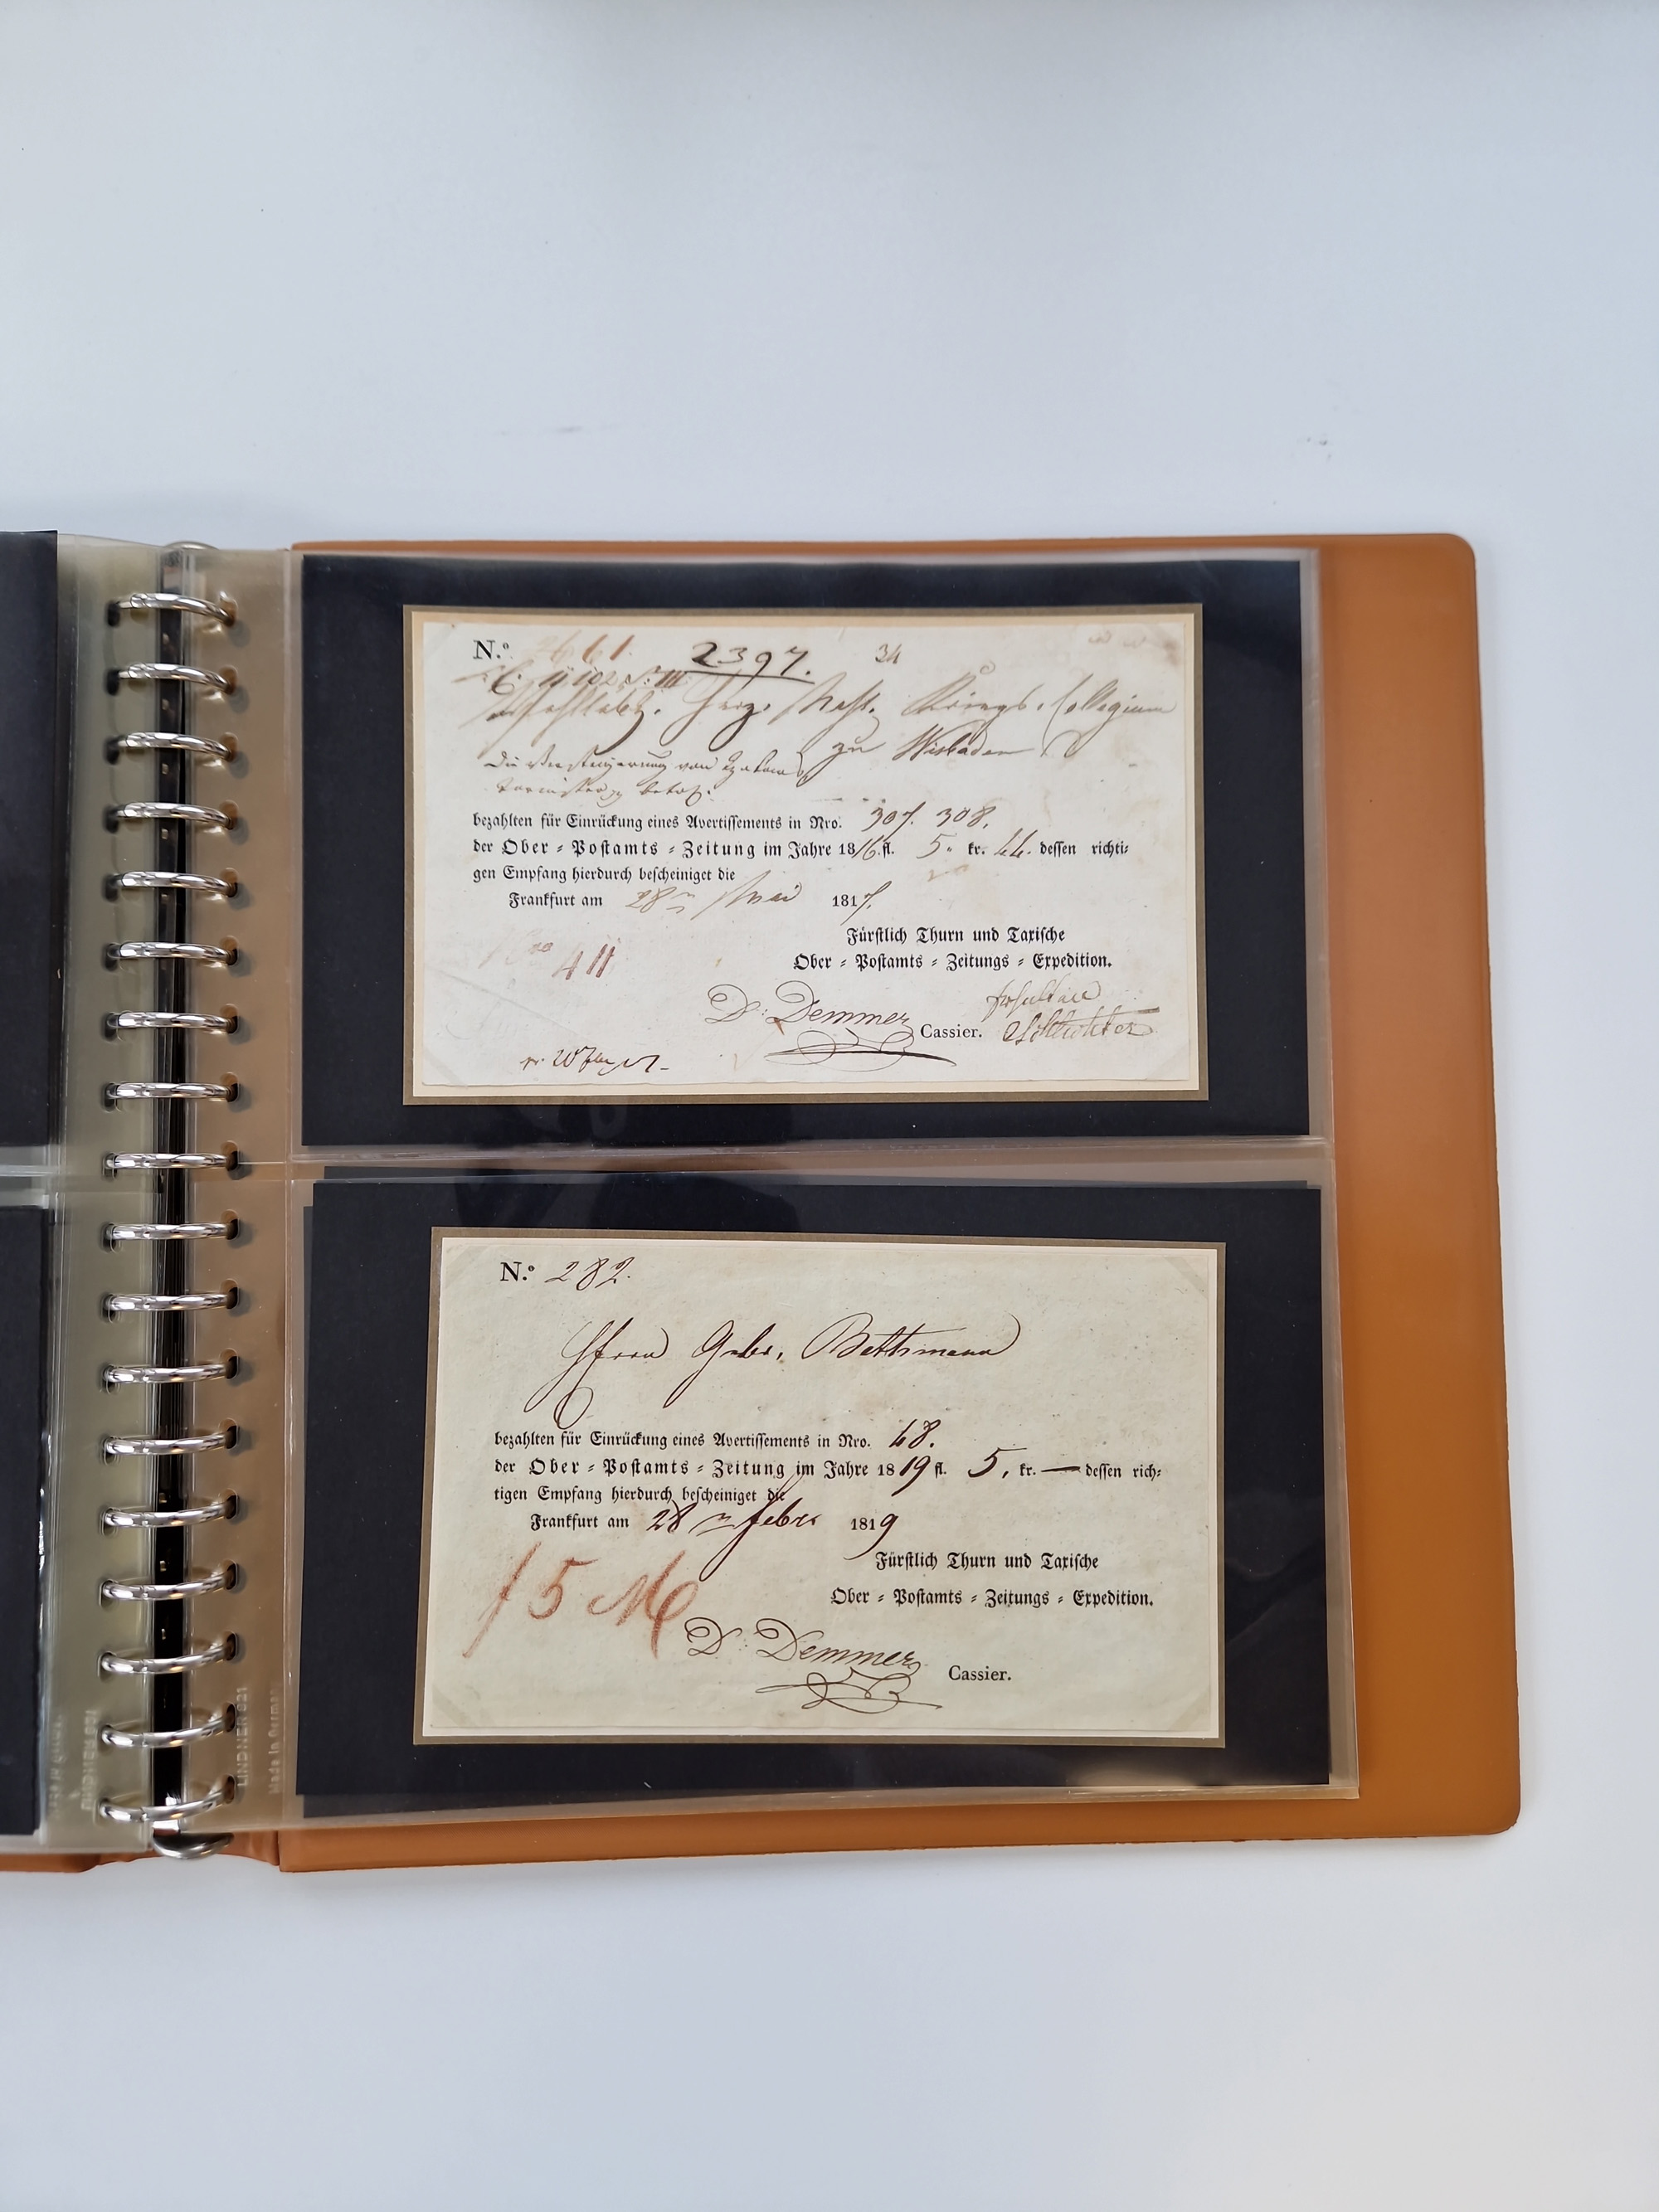 N.º 2661. 2397. 34
Herz. Nass. Kriegs. Collegium
zu Wisbaden
Die Versteigerung von
betr.
bezahlten für Einrückung eines Avertissements in Nro. 307. 308.
der Ober-Postamts-Zeitung im Jahre 1816. fl. 5. kr. 44. dessen richti-
gen Empfang hierdurch bescheiniget die
Frankfurt am 28n Mai 1817.
Fürstlich Thurn und Taxische
Ober-Postamts-Zeitungs-Expedition.
411
D. Demmer Cassier.
N.º 282.
Hherrn Gebr. Bethmann
bezahlten für Einrückung eines Avertissements in Nro. 48.
der Ober-Postamts-Zeitung im Jahre 1819 fl. 5. kr. — dessen rich-
tigen Empfang hierdurch bescheiniget die
Frankfurt am 28n febr 1819
Fürstlich Thurn und Taxische
Ober-Postamts-Zeitungs-Expedition.
f 5
D. Demmer Cassier.
LINDNER 821
Made in Germany